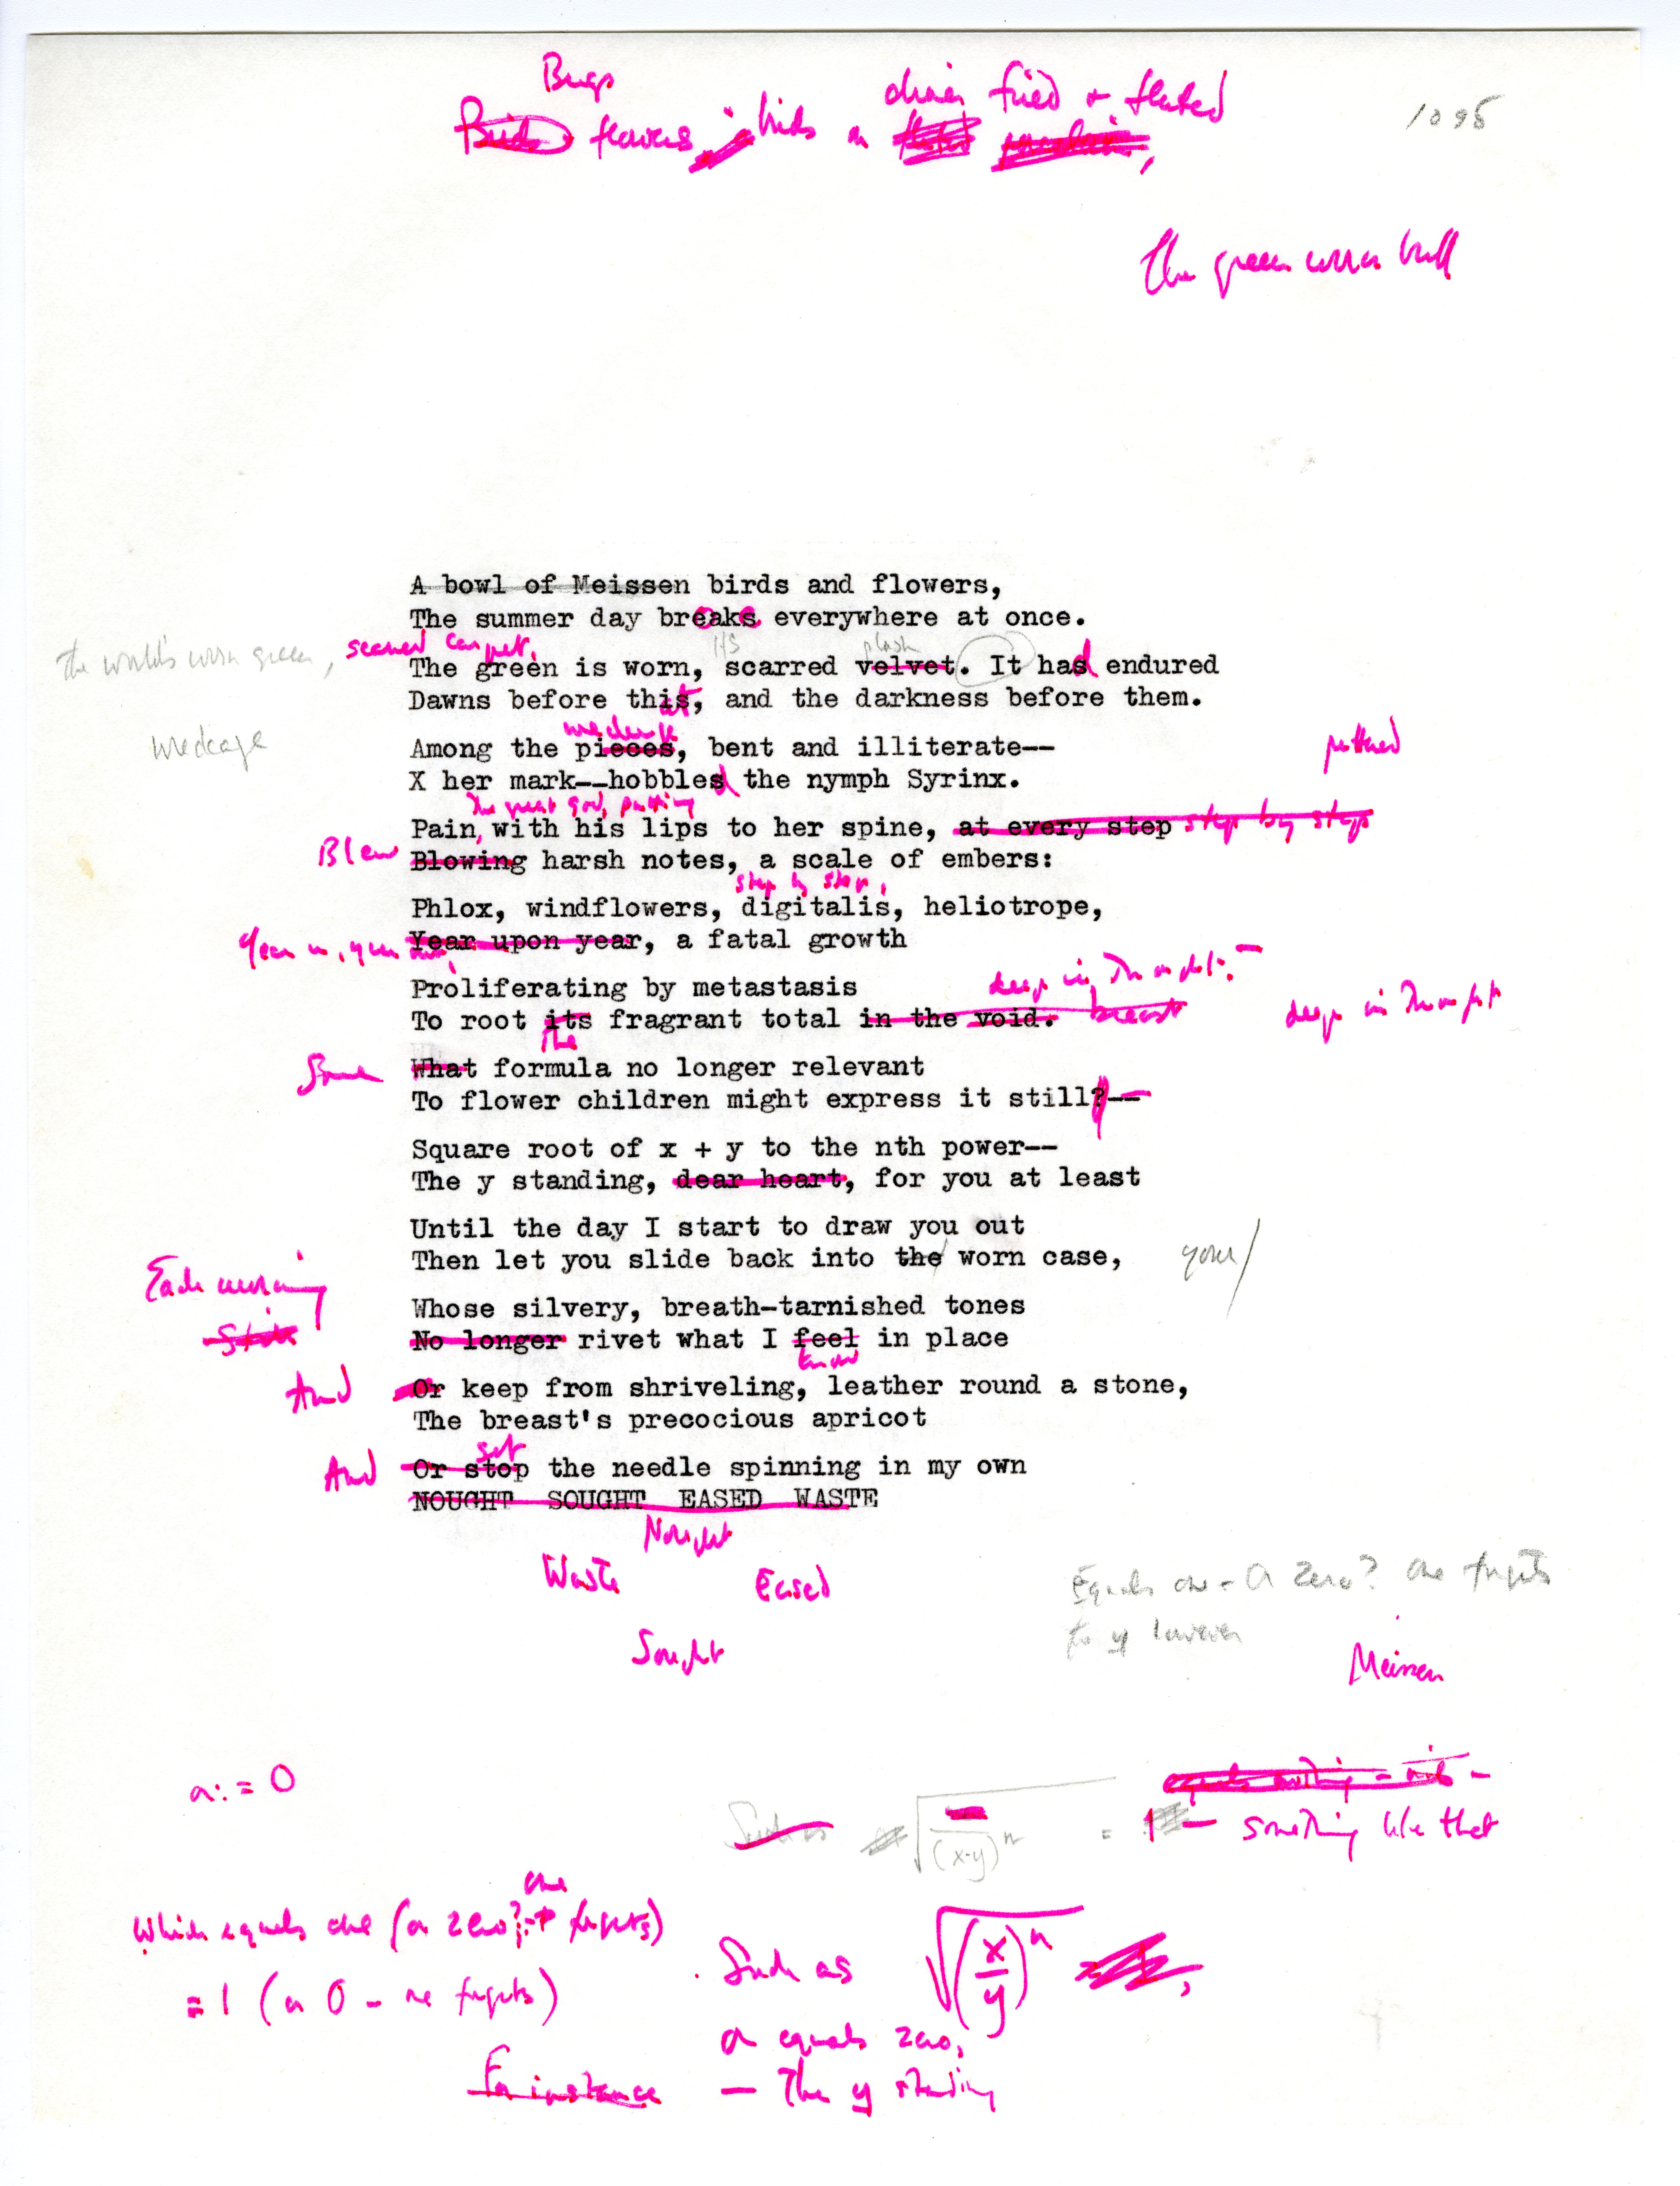 Bugs
flowers
fired + fluted
1095
The green worn
A bowl of Meissen birds and flowers,
The summer day breaks everywhere at once.
the world's worn green, scarred carpet.
its plush
The green is worn, scarred velvet. It had endured
Dawns before this, and the darkness before them.
wreckage
Among the pieces, bent and illiterate--
X her mark--hobbled the nymph Syrinx.
The great god putting
Pain, with his lips to her spine, at every step step by step
Blew Blowing harsh notes, a scale of embers:
step by step,
Phlox, windflowers, digitalis, heliotrope,
Year in, year out, Year upon year, a fatal growth
Proliferating by metastasis
deep in Thought:
To root its fragrant total in the void. breast deep in Thought
The
Some What formula no longer relevant
To flower children might express it still?--
Square root of x + y to the nth power--
The y standing, dear heart, for you at least
Until the day I start to draw you out
Then let you slide back into the worn case, your/
Each morning
Whose silvery, breath-tarnished tones
No longer rivet what I feel in place
know
And Or keep from shriveling, leather round a stone,
The breast's precocious apricot
set
And Or stop the needle spinning in my own
NOUGHT SOUGHT EASED WASTE
Nought
Waste Eased
Sought
Equals one - or zero? one forgets
for y
Meissen
a := 0
equals nothing
Such as √ (x-y)ⁿ = 1 — something like that
one
Which equals one (or zero? forgets)
= 1 (or 0 - one forgets)
Such as √(x/y)ⁿ
or equals zero,
For instance — The y standing